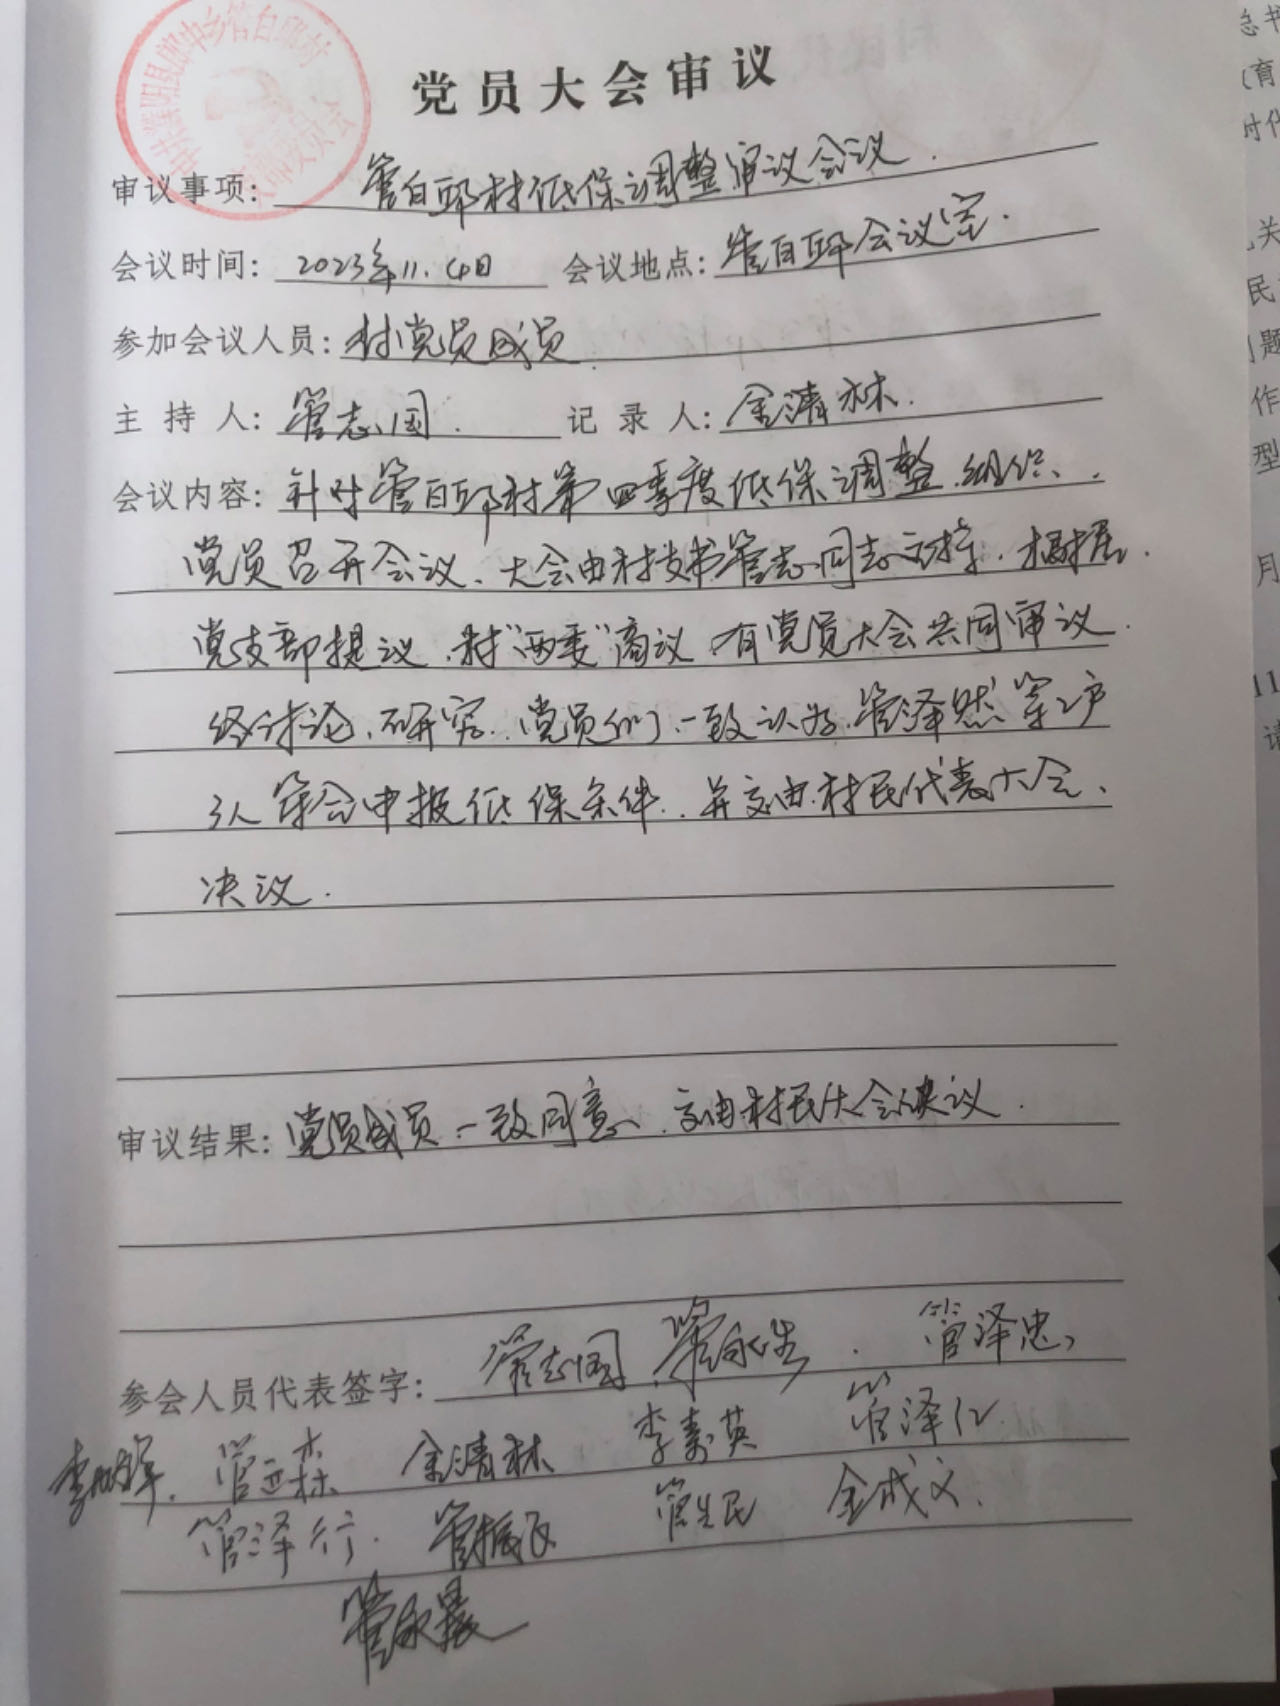 中共濮阳县郎中乡管白邱村
党员大会审议
审议事项: 管白邱村低保调整审议会议.
会议时间: 2023年11.4日 会议地点: 管白邱会议室.
参加会议人员: 村党员成员
主持人: 管志国. 记录人: 金清林.
会议内容: 针对管白邱村第四季度低保调整.组织、
党员召开会议、大会由村支书管志同志主持.根据
党支部提议.村“两委”商议.有党员大会共同审议.
经讨论、研究.党员们.一致认为.管泽然等2户
3人符合申报低保条件.并交由.村民代表大会、
决议.
审议结果: 党员成员一致同意.交由村民大会决议.
参会人员代表签字: 管志国 管永 管泽忠
管 森 金清林 李素英 管泽仁
管泽行. 管振 管生民 金成文.
管永
总书
育
时代
关
民
题
作
型
月
11
请